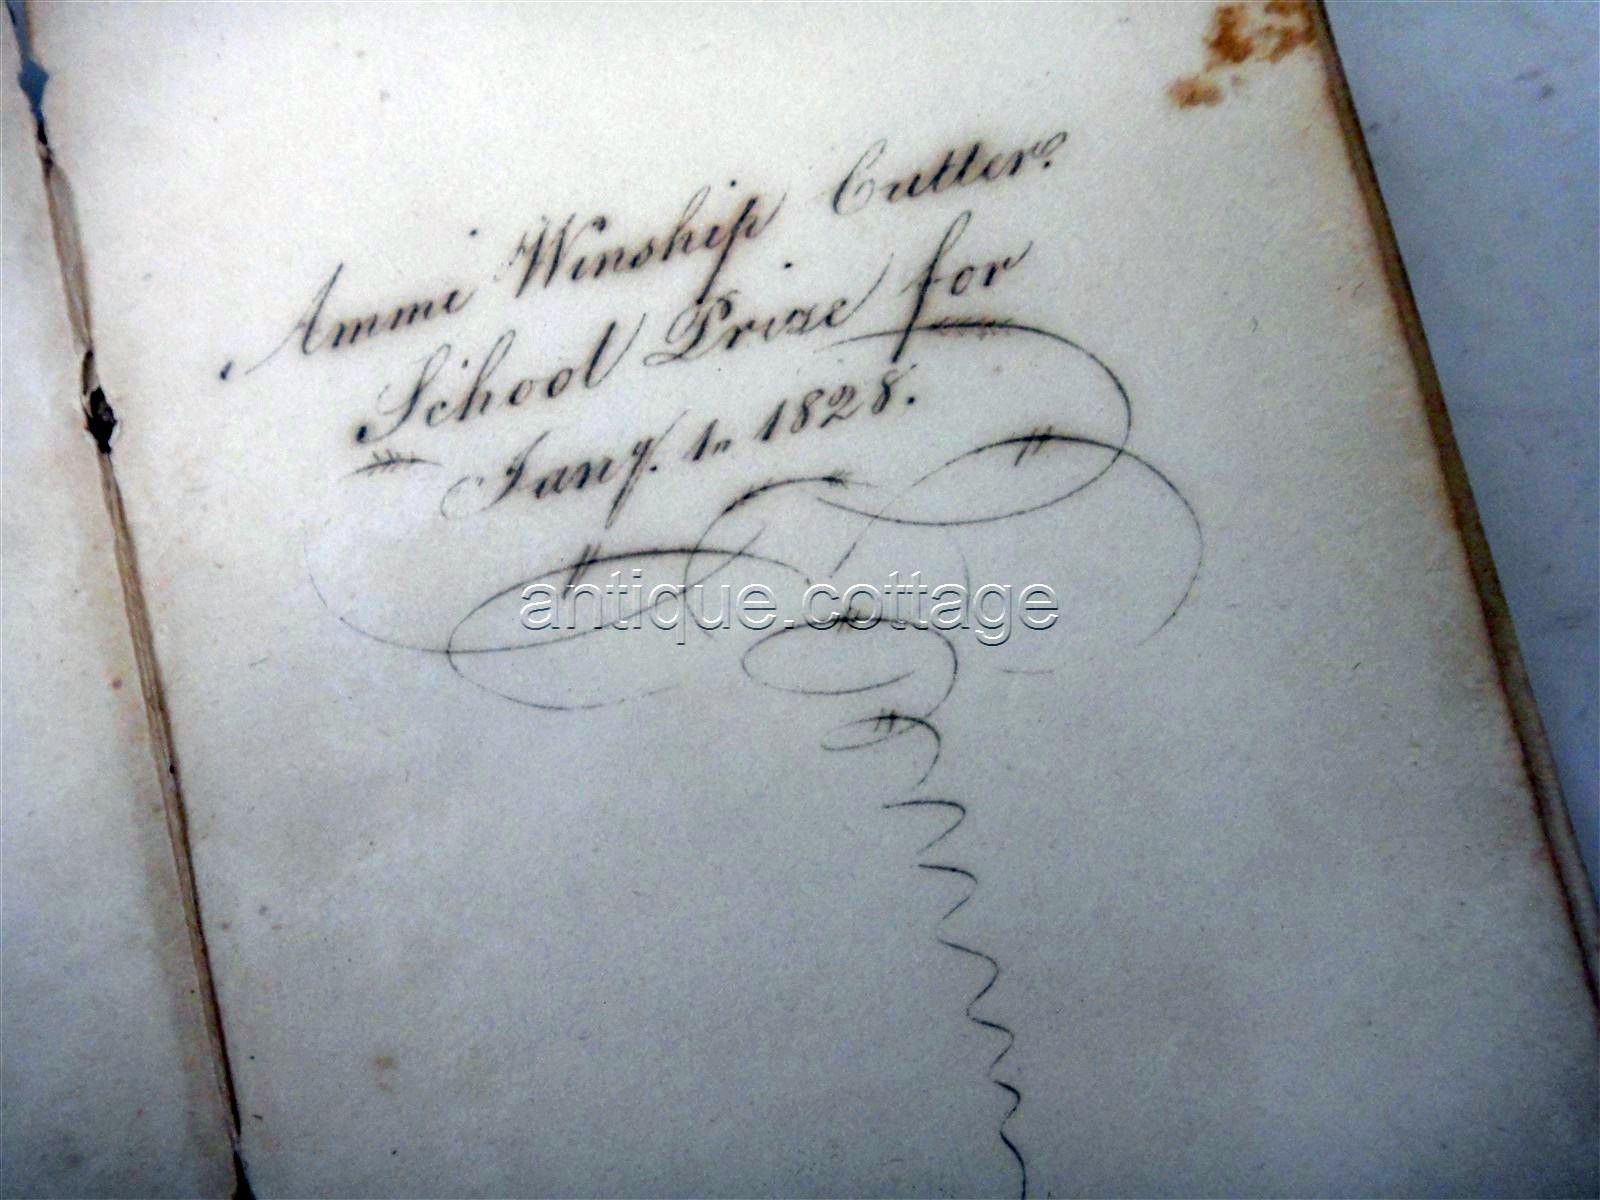 Ammi Winship Cutter.
School Prize for
Jany. 1. 1828.
antique.cottage